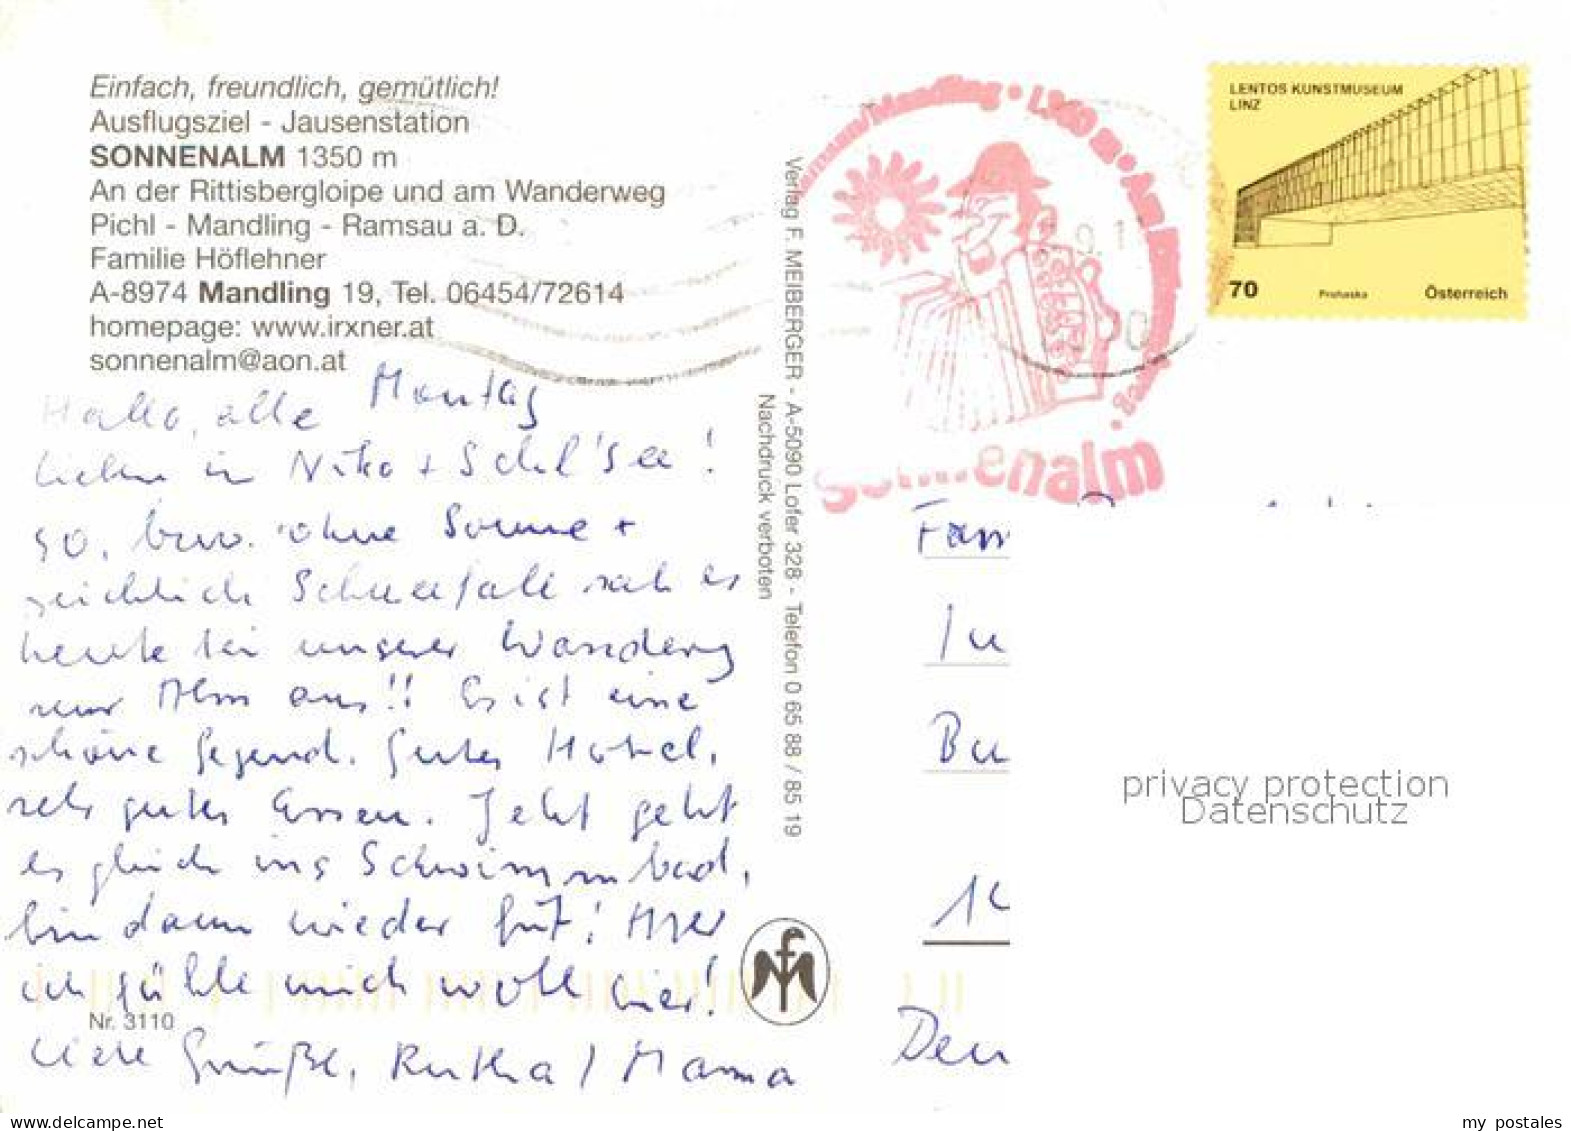 Einfach, freundlich, gemütlich!
Ausflugsziel - Jausenstation
SONNENALM 1350 m
An der Rittisbergloipe und am Wanderweg
Pichl - Mandling - Ramsau a. D.
Familie Höflehner
A-8974 Mandling 19, Tel. 06454/72614
homepage: www.irxner.at
sonnenalm@aon.at
Montag
Hallo, alle
in
so, bzw. ohne Sonne +
Schneefall sah es
heute bei unserer Wanderung
zur Alm aus!! Es ist eine
schöne Gegend. Gutes Hotel,
sehr gutes Essen. Jetzt geht
es gleich ins Schwimmbad,
bin dann wieder fit! Aber
ich fühle mich wohl hier!
Nr. 3110
Liebe Grüße, Rutha / Mama
Verlag F. MEIBERGER - A-5090 Lofer 328 - Telefon 0 65 88 / 85 19
Nachdruck verboten
Sonnenalm
LENTOS KUNSTMUSEUM
LINZ
70 Prohaska Österreich
Fam
In
Bu
Deu
privacy protection
Datenschutz
www.delcampe.net
my_postales